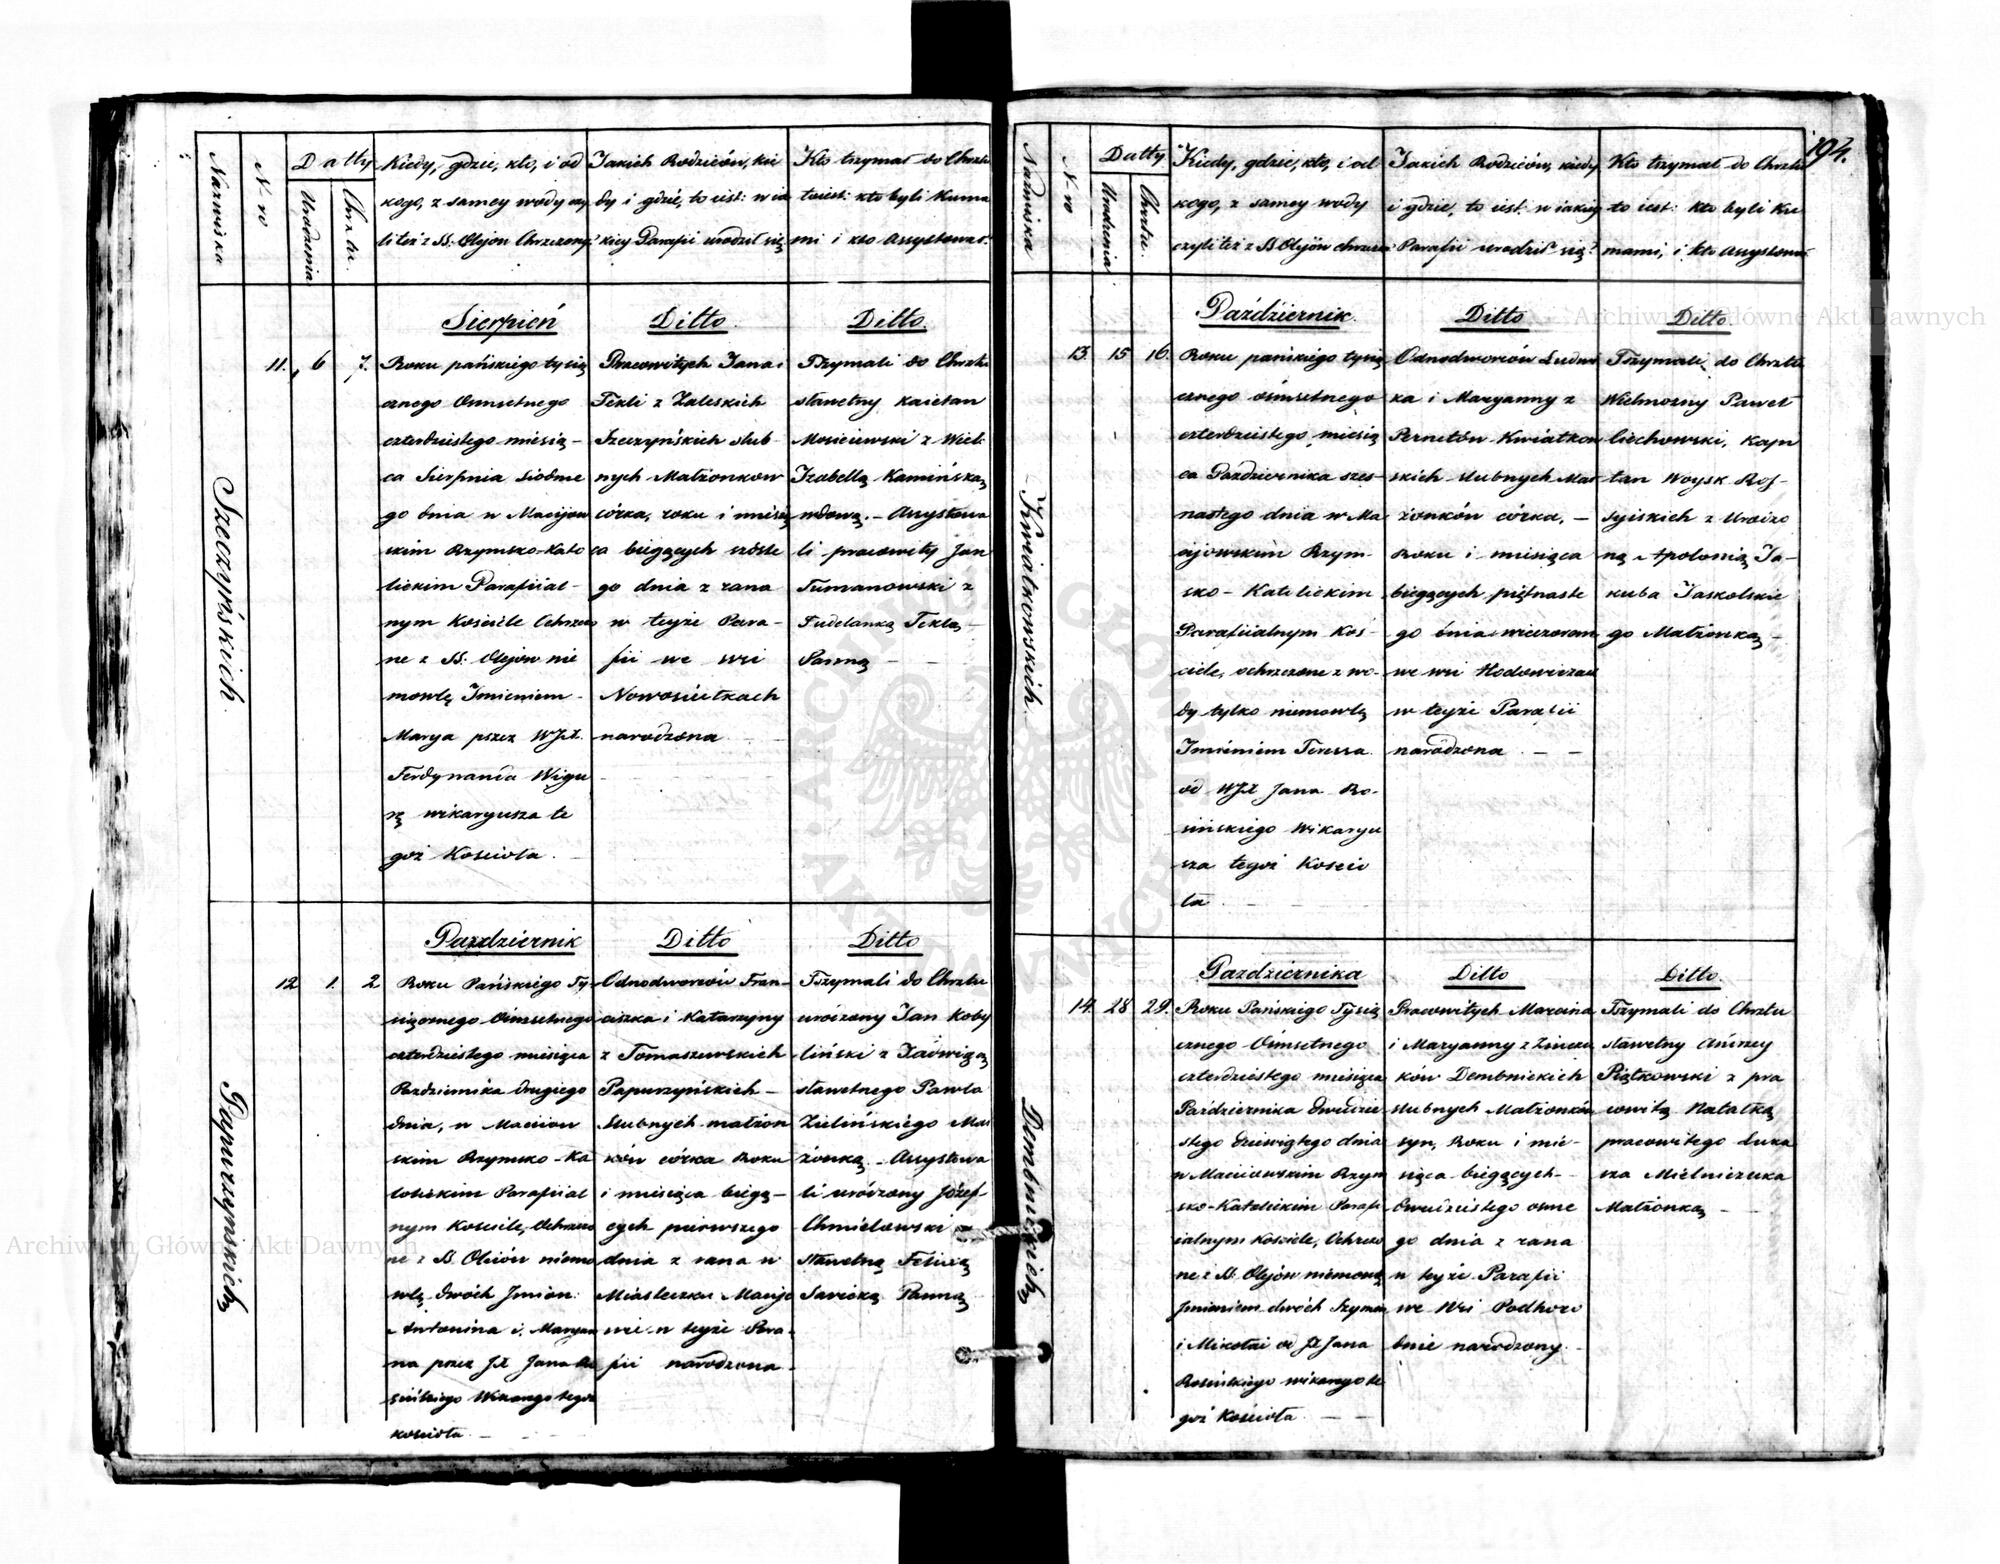 Nazwiska
Nro
Datty
Urodzenia
Chrztu.
Kiedy, gdzie, kto, i od
kogo, z samey wody czy
li też z SS: Olejow Chrzczony?
Jakich Rodziców, kie
dy i gdzie, to iest: w ia
kiey Parafii urodził się
Kto trzymał do Chrztu
toiest: kto byli Kuma
mi i kto Assystował.
Szczczyńskich
11.
6
7.
Sierpień
Roku pańskiego tysią
cznego Osmsetnego
czterdziestego miesią-
ca Sierpnia Siodme
go dnia w Maciiow
skim Rzymsko-Kato
lickim Parafiial-
nym Kosciele Ochrzczo
ne z SS: Olejow nie
mowlę Imieniem
Marya przez WJX.
Ferdynanda Wigu
rę wikaryusza te
goż Kosciola.
Ditto.
Pracowitych Jana i
Tekli z Zaleskich
Szczczyńskich slub-
nych Malżonkow
córka, roku i miesią
ca biegących szóste
go dnia z rana
w teyże Para-
fii we wsi
Nowosiułkach
narodzona
Ditto.
Trzymali do Chrztu
slawetny Kaietan
Mosieiewski z Wiel:
Izabellą Kamińską
wdową. - Assystowa
li pracowity Jan
Tumanowski z
Tudelanką Teklą
Panną
12
1.
2
Pazdziernik
Roku Pańskiego Ty-
siącznego Osmsetnego
czterdziestego miesiąca
Pazdziernika drugiego
dnia, w Maciiow
skim Rzymsko-Ka
tolickim Parafiial
nym Kosciele, Ochrzczo
ne z SS. Oleiów niemo
wlę dwóch Jmion:
Antonina i Maryan
na przez JX Jana Ro
sińskiego Wikarego tegoż
kosciola
Ditto
Odnodworców Fran-
ciszka i Katarzyny
z Tomaszewskich
Papurzyńskich -
slubnych malżon
ków córka Roku
i miesiąca biegą-
cych pierwszego
dnia z rana w
Miasteczku Macijo
wie w teyże Para-
fii narodzona
Ditto
Trzymali do Chrztu
urodzony Jan Koby
liński z Jadwigą
slawetnego Pawla
Zielińskiégo Mal
żonką - Assystowa
li urodzony Józef
Chmielowski z
Slawetną Felixą
Sawicką Panną
Papurzynskich
194.
Nazwiska
Nro
Datty
Urodzenia
Chrztu.
Kiedy, gdzie, kto, i od
kogo, z samey wody
czyli też z SS Olejów chrzczon
Jakich Rodziców, kiedy
i gdzie, to iest: w iakiey
Parafii urodził się?
Kto trzymał do Chrztu
to iest: kto byli Ku
mami, i kto Assystował
Kwiatkowskich
13.
15
16.
Październik.
Roku pańskiego tysią
cznego ósmsetnego
czterdziestego miesią
ca Pazdziernika szes-
nastego dnia w Ma
cijowskim Rzym-
sko-Katolickim
Parafiialnym Koś-
ciele, ochrzczone z wo-
dy tylko niemowlę
Imieniem Teressa
od WJX Jana Ro-
sińskiego Wikaryu
sza tegoż Koscio
la
Ditto
Odnodworców Ludwi
ka i Maryanny z
Pernetów Kwiatkow
skich slubnych Mal
żonków córka, -
Roku i miesiąca
biegących piętnaste
go dnia wieczorem
we wsi Hodowiczach
w teyże Parafii
narodzona
Ditto
Trzymali do Chrztu
Wielmozny Paweł
Ciechowski, Kapi
tan Woysk Ros-
syiskich z Urodzo
ną Apolonią Ja-
kuba Jaskolskie
go Malżonką
Dembnickich
14.
28
29.
Pazdziernika
Roku Pańskiego Tysią
cznego Osmsetnego
czterdziestego miesiąca
Października dwudzie
stego dziewiątego dnia
w Maciiowskim Rzym
sko-Katolickim Parafi
ialnym Kosciele, Ochrzczo
ne z SS: Olejów niemowlę
Jmieniem dwóch Szymon
i Mikolai od JX Jana
Rosińskiego wikarego te
goż Kosciola
Ditto
Pracowitych Marcina
i Maryanny z Zinczu
ków Dembnickich
slubnych Malżonków
syn, Roku i mie-
siąca biegących
dwudziestego osme
go dnia z rana
w teyże Parafii
we Wsi Podhoro
dnie narodzony
Ditto.
Trzymali do Chrztu
slawetny Andrzey
Piątkowski z pra
cowitą Natalką
pracowitego Łuka
sza Mielniczuka
Malżonką
Archiwum Główne Akt Dawnych
Archiwum Główne Akt Dawnych
ARCHIWUM GŁÓWNE AKT DAWNYCH